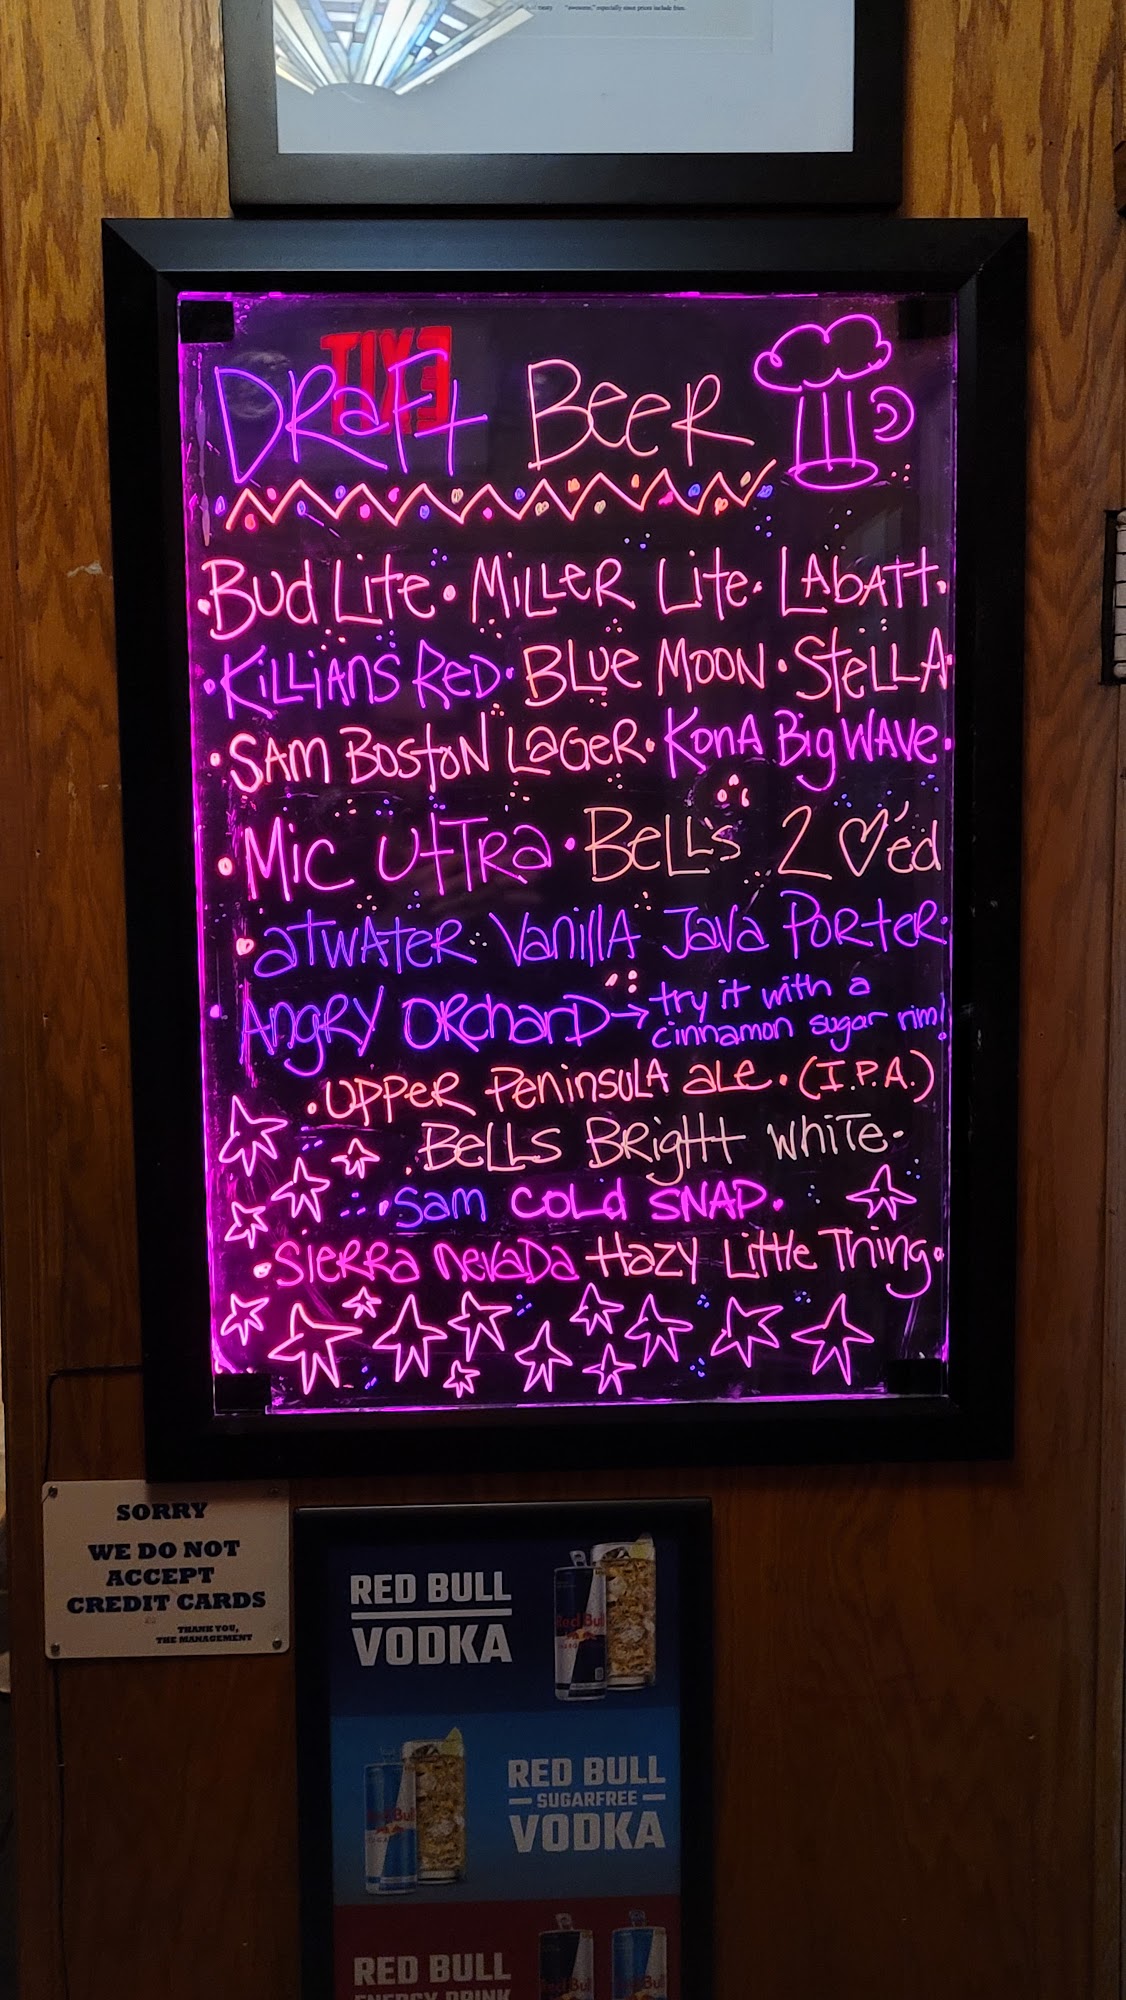 "awesome," especially since prices include fries.
EXIT
DRaFt BeeR
• Bud Lite • MiLLeR Lite • LAbATT •
• KiLLiANS ReD • BLue MOON • SteLLA •
• SAM BOStoN LaGeR • KonA Big WAVe •
• Mic ULTRa • BeLL's 2 ♡'ed
• aTWAteR Vanilla Java PoRteR •
• ANgRY ORchaRD → try it with a
cinnamon sugar rim!
• UPPeR PeninsuLA aLe • (I.P.A.)
• BeLLS BRight WhiTe •
• Sam COLd SNAP •
• SieRRa NevaDa Hazy Little Thing •
SORRY
WE DO NOT
ACCEPT
CREDIT CARDS
THANK YOU,
THE MANAGEMENT
RED BULL
VODKA
Red Bull
RED BULL
SUGARFREE
VODKA
Red Bull
RED BULL
ENERGY DRINK